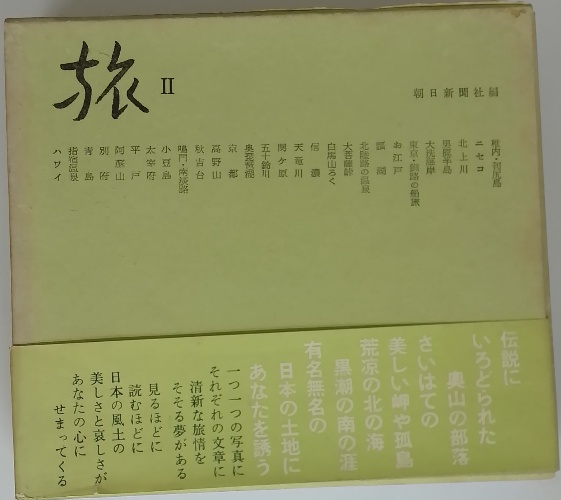 旅 II
朝日新聞社編
稚内・利尻島
ニセコ
北上川
男鹿半島
大洗海岸
東京・釧路の船旅
お江戸
諏訪
北陸路の温泉
大菩薩峠
白馬山ろく
信濃
天竜川
関ケ原
五十鈴川
奥琵琶湖
京都
高野山
秋吉台
鳴門・南淡路
小豆島
太宰府
平戸
阿蘇山
別府
青島
指宿温泉
ハワイ
伝説に
いろどられた
奥山の部落
さいはての
美しい岬や孤島
荒凉の北の海
黒潮の南の涯
有名無名の
日本の土地に
あなたを誘う
一つ一つの写真に
それぞれの文章に
清新な旅情を
そそる夢がある
見るほどに
読むほどに
日本の風土の
美しさと哀しさが
あなたの心に
せまってくる